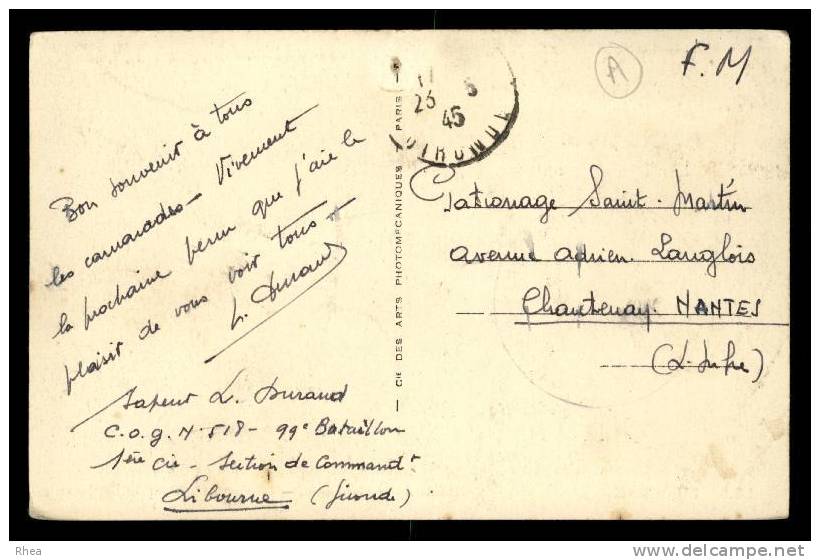 Bon souvenir à tous
les camarades - Vivement
la prochaine perm que j'aie le
plaisir de vous voir tous -
L. Durand
Sapeur L. Durand
C.O.G. N° 518 - 99e Bataillon
1ère Cie - Section de Commandt
Libourne - (Gironde)
— CIE DES ARTS PHOTOMÉCANIQUES — PARIS —
23
45
GIRONDE
A
F.M
Patronage Saint-Martin
avenue Adrien Langlois
Chantenay. NANTES
(L. Infre)
Rhea
www.delcampe.net